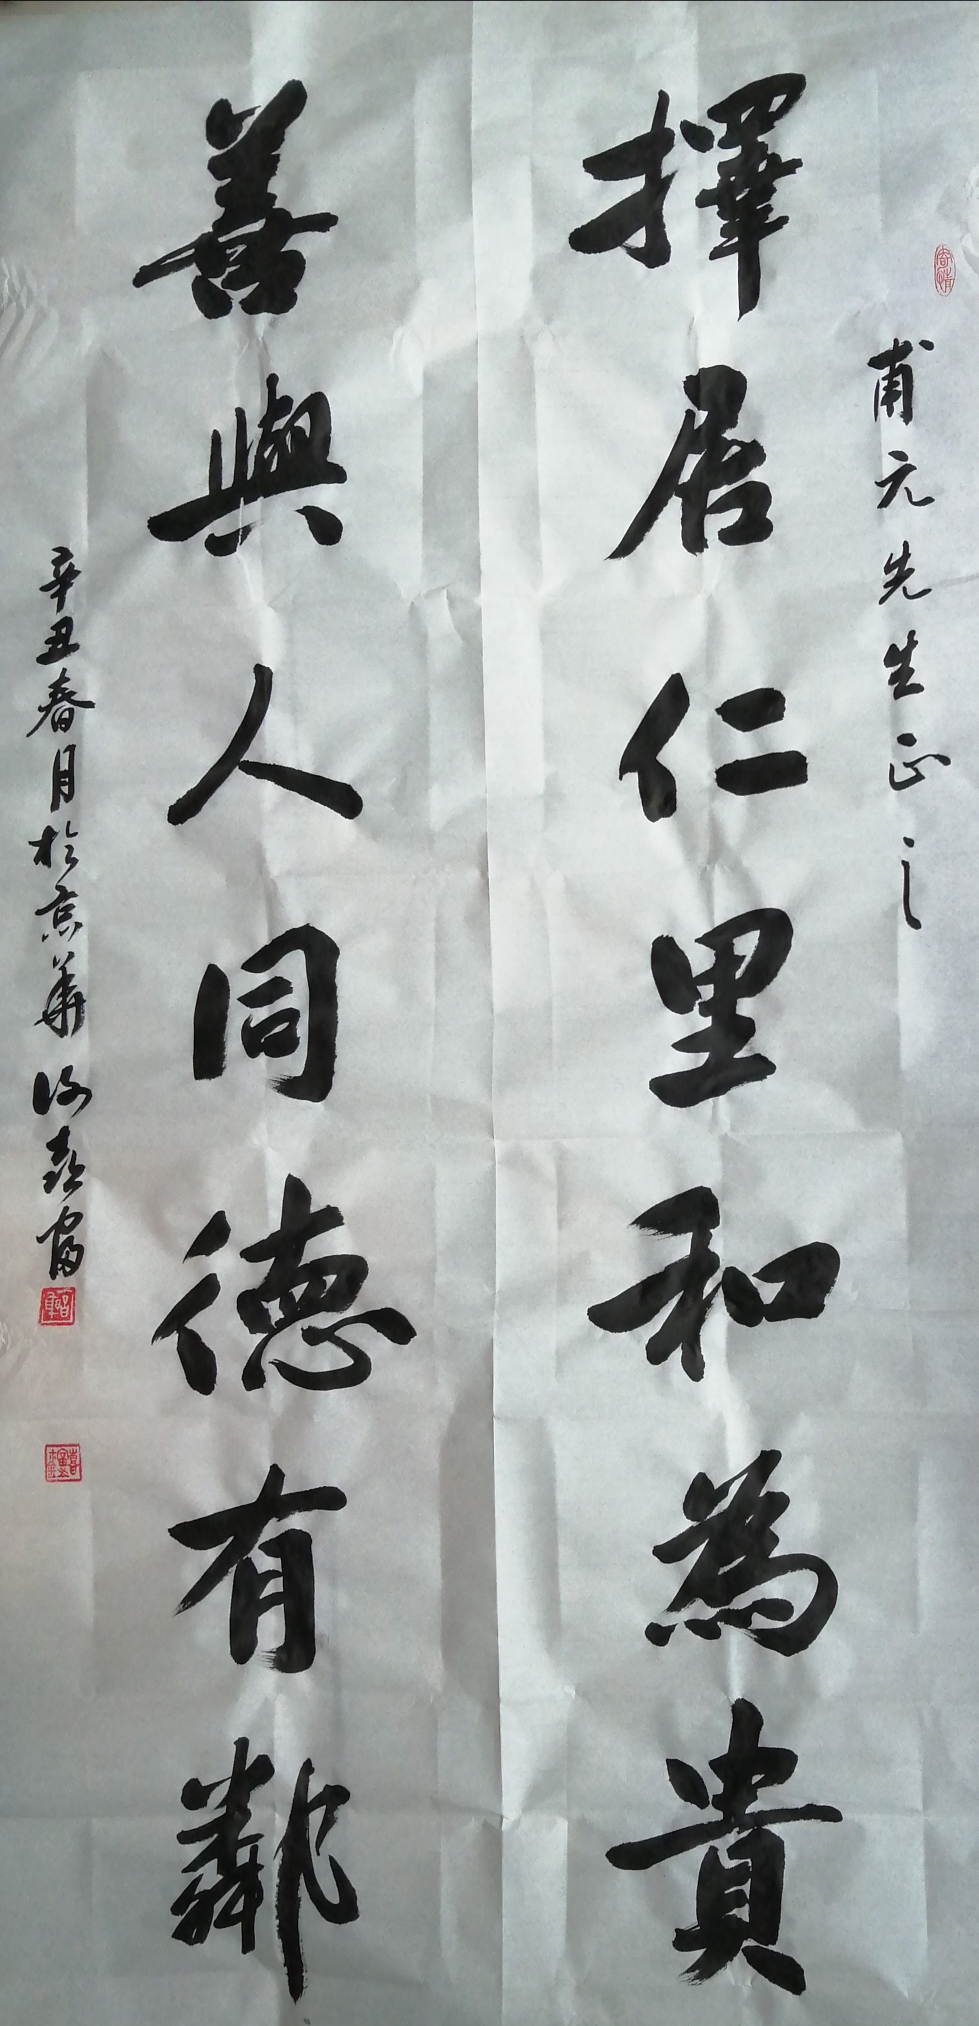 甫元先生正之
擇居仁里和為貴
善與人同德有鄰
辛丑春月於京華